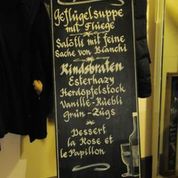 Geflügelsuppe
mit Fliege
Salötli mit feine
Sache von Bianchi
Rindsbraten
Esterhazy
Herdöpfelstock
Vanille-Rüebli
Grün-Zügs
Dessert
la Rose et
le Papillon